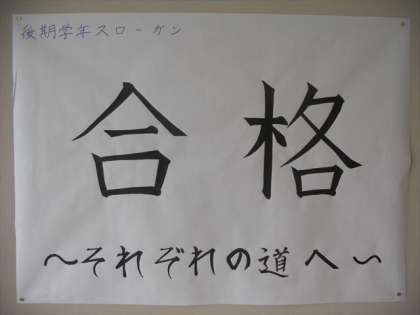 後期学年スローガン
合格
〜それぞれの道へ〜